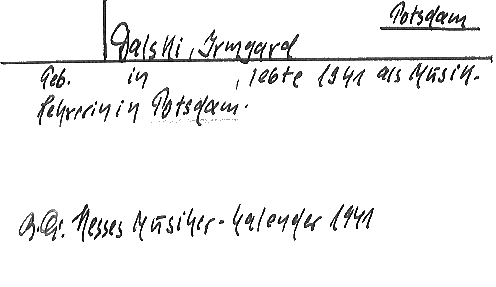 Potsdam
Dalski, Irmgard
Geb. in , lebte 1941 als Musik-
lehrerin in Potsdam.
Hesses Musiker-Kalender 1941